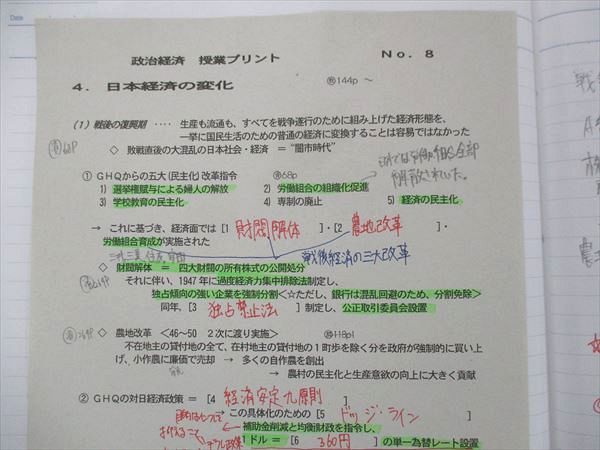 Date
政治経済 授業プリント No. 8
4. 日本経済の変化 144p ~
(1) 戦後の復興期 ‥‥ 生産も流通も、すべてを戦争遂行のために組み上げた経済形態を、
一挙に国民生活のための普通の経済に変換することは容易ではなかった
◇ 敗戦直後の大混乱の日本社会・経済 = “闇市時代”
① GHQからの五大(民主化)改革指令 68p
1) 選挙権賦与による婦人の解放 2) 労働組合の組織化促進
3) 学校教育の民主化 4) 専制の廃止 5) 経済の民主化
解散されていた。
→ これに基づき、経済面では[1 財閥解体 ]・[2 農地改革 ]・
労働組合育成が実施された
戦後経済の三大改革
◇ 財閥解体 = 四大財閥の所有株式の公開処分
それに伴い、1947年に過度経済力集中排除法制定し、
独占傾向の強い企業を強制分割<☆ただし、銀行は混乱回避のため、分割免除>
同年、[3 独占禁止法 ]制定し、公正取引委員会設置
◇ 農地改革 <46~50 2次に渡り実施> 118p1
不在地主の貸付地の全て、在村地主の貸付地の1町歩を除く分を政府が強制的に買い上
げ、小作農に廉価で売却 → 多くの自作農を創出
→ 農村の民主化と生産意欲の向上に大きく貢献
② GHQの対日経済政策 = [4 経済安定九原則 ]
→ この具体化のための[5 ドッジ・ライン
補助金削減と均衡財政を指令し、
1ドル = [6 360円 ]の単一為替レート設置